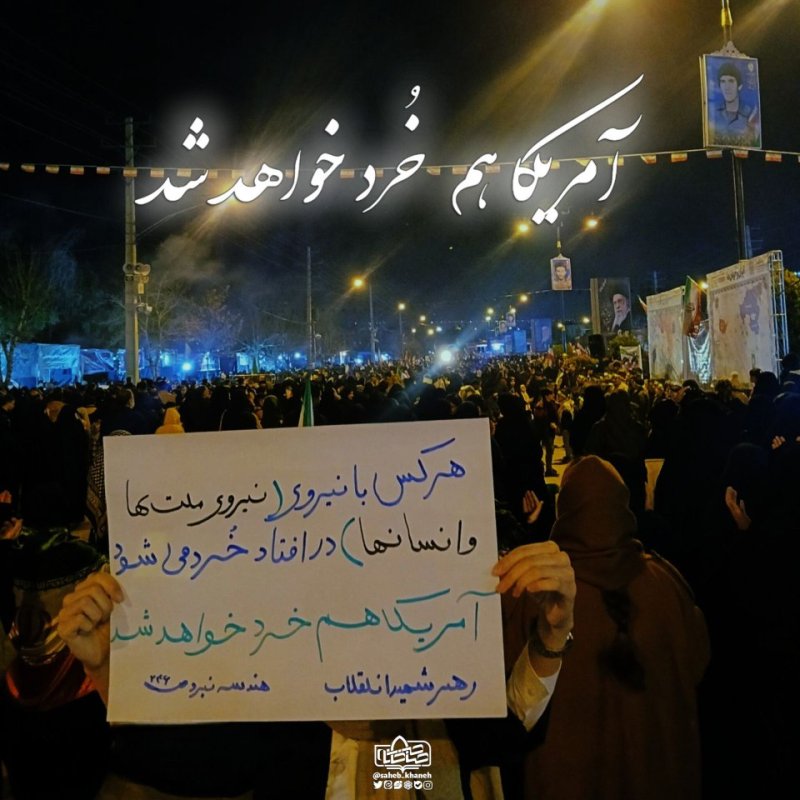 آمریکا هم خُرد خواهد شد
هرکس با نیروی (نیروی ملت‌ها
و انسانها) در افتاد خُرد می‌شود
آمریکا هم خرد خواهد شد
رهبر شهید انقلاب هندسه نبرد ص ۲۴۶
@saheb_khaneh